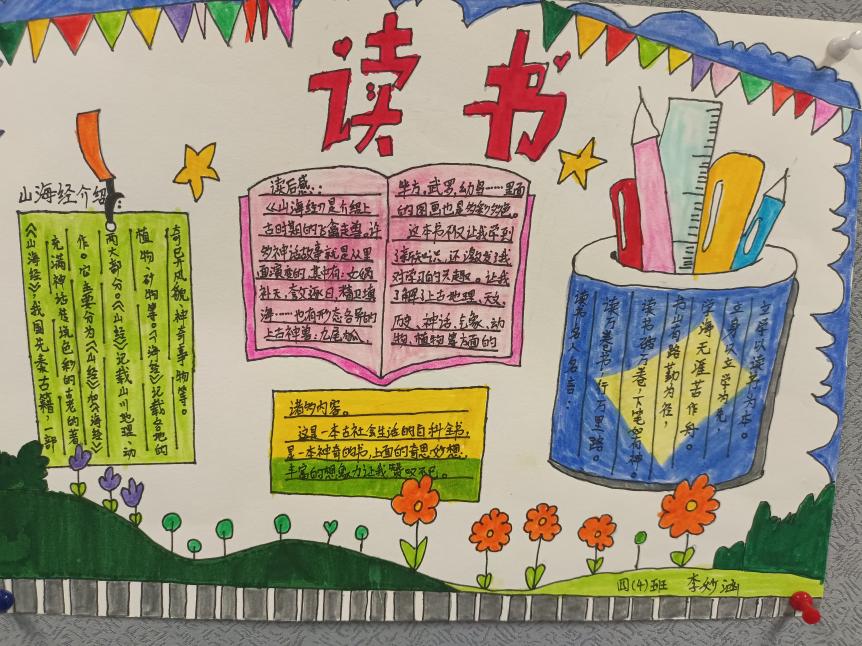 读书
山海经介绍:
《山海经》,我国先秦古籍,一部
充满神话传说色彩的古老的著
作。它主要分为《山经》和《海经》
两大部分。《山经》记载山川地理、动
植物、矿物等。《海经》记载各地的
奇已并风貌、神奇事物等。
读后感::
《山海经》是介绍上
古时期的飞禽走兽。许
多神话故事就是从里
面演变的,其中有:女娲
补天、夸父逐日、精卫填
海……也有形态各异的
上古神兽:九尾狐、
毕方、武罗、幼鸟……里面
的图画也是多彩多色。
这本书不仅让我学到
了读知识,还激发了我
对学习的兴趣。让我
了解了上古地理、天文、
历史、神话、气象、动
物、植物等方面的
诸多内容。
这是一本古社会生活的百科全书,
是一本神奇的书,上面的奇思妙想、
丰富的想象力让我赞叹不已。
读书名人名言:
读万卷书,行万里路。
读书破万卷,下笔如有神。
书山有路勤为径,
学海无涯苦作舟。
立身以立学为先,
立学以读书为本。
四(4)班 李妙涵